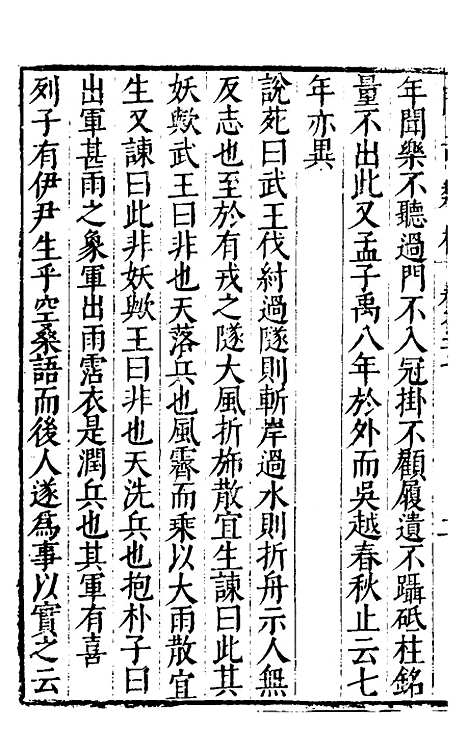 年聞樂不聽過門不入冠掛不顧履遺不躡砥柱銘
量不出此又孟子禹八年於外而吳越春秋止云七
年亦異
說苑曰武王伐紂過隧則斬岸過水則折舟示人無
反志也至於有戎之隧大風折斾散宜生諫曰此其
妖歟武王曰非也天落兵也風霽而乘以大雨散宜
生又諫曰此非妖歟王曰非也天洗兵也抱朴子曰
出軍甚雨之象軍出雨霑衣是潤兵也其軍有喜
列子有伊尹生乎空桑語而後人遂爲事以實之云